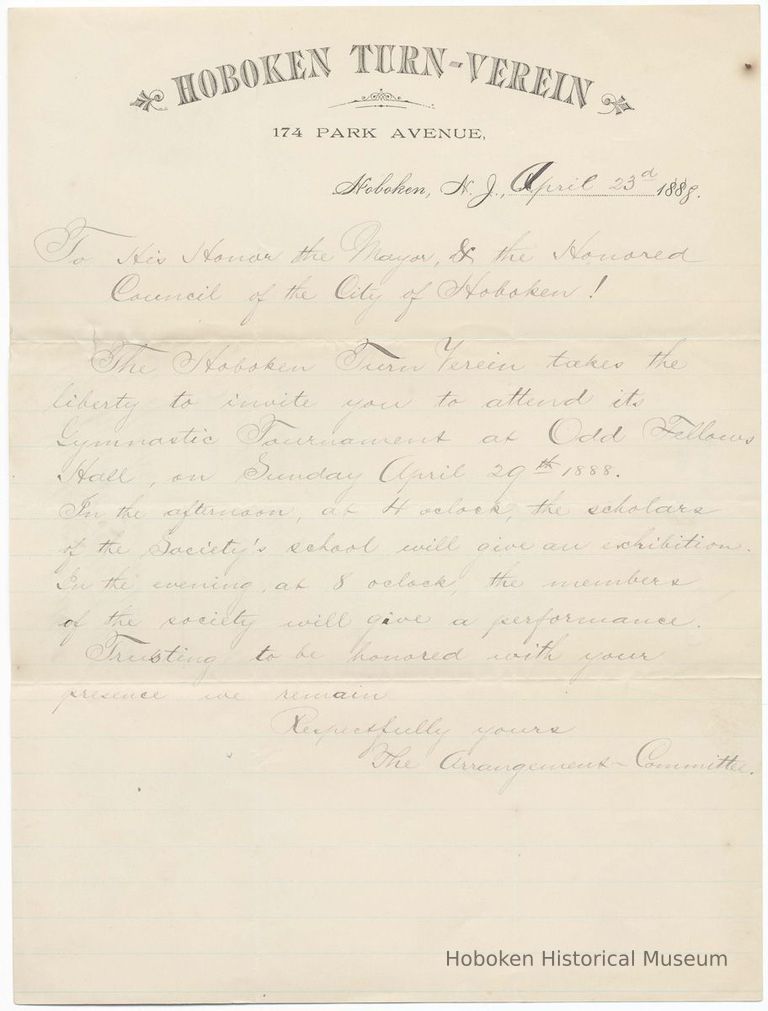 HOBOKEN TURN-VEREIN
174 PARK AVENUE,
Hoboken, N. J., April 23d 1888.
To His Honor the Mayor, & the Honored
Council of the City of Hoboken!
The Hoboken Turn Verein takes the
liberty to invite you to attend its
Gymnastic Tournament at Odd Fellows
Hall, on Sunday April 29th 1888.
In the afternoon, at 4 oclock, the scholars
of the Society's school will give an exhibition.
In the evening, at 8 oclock, the members
of the society will give a performance.
Trusting to be honored with your
presence we remain
Respectfully yours
The Arrangement-Committee.
Hoboken Historical Museum